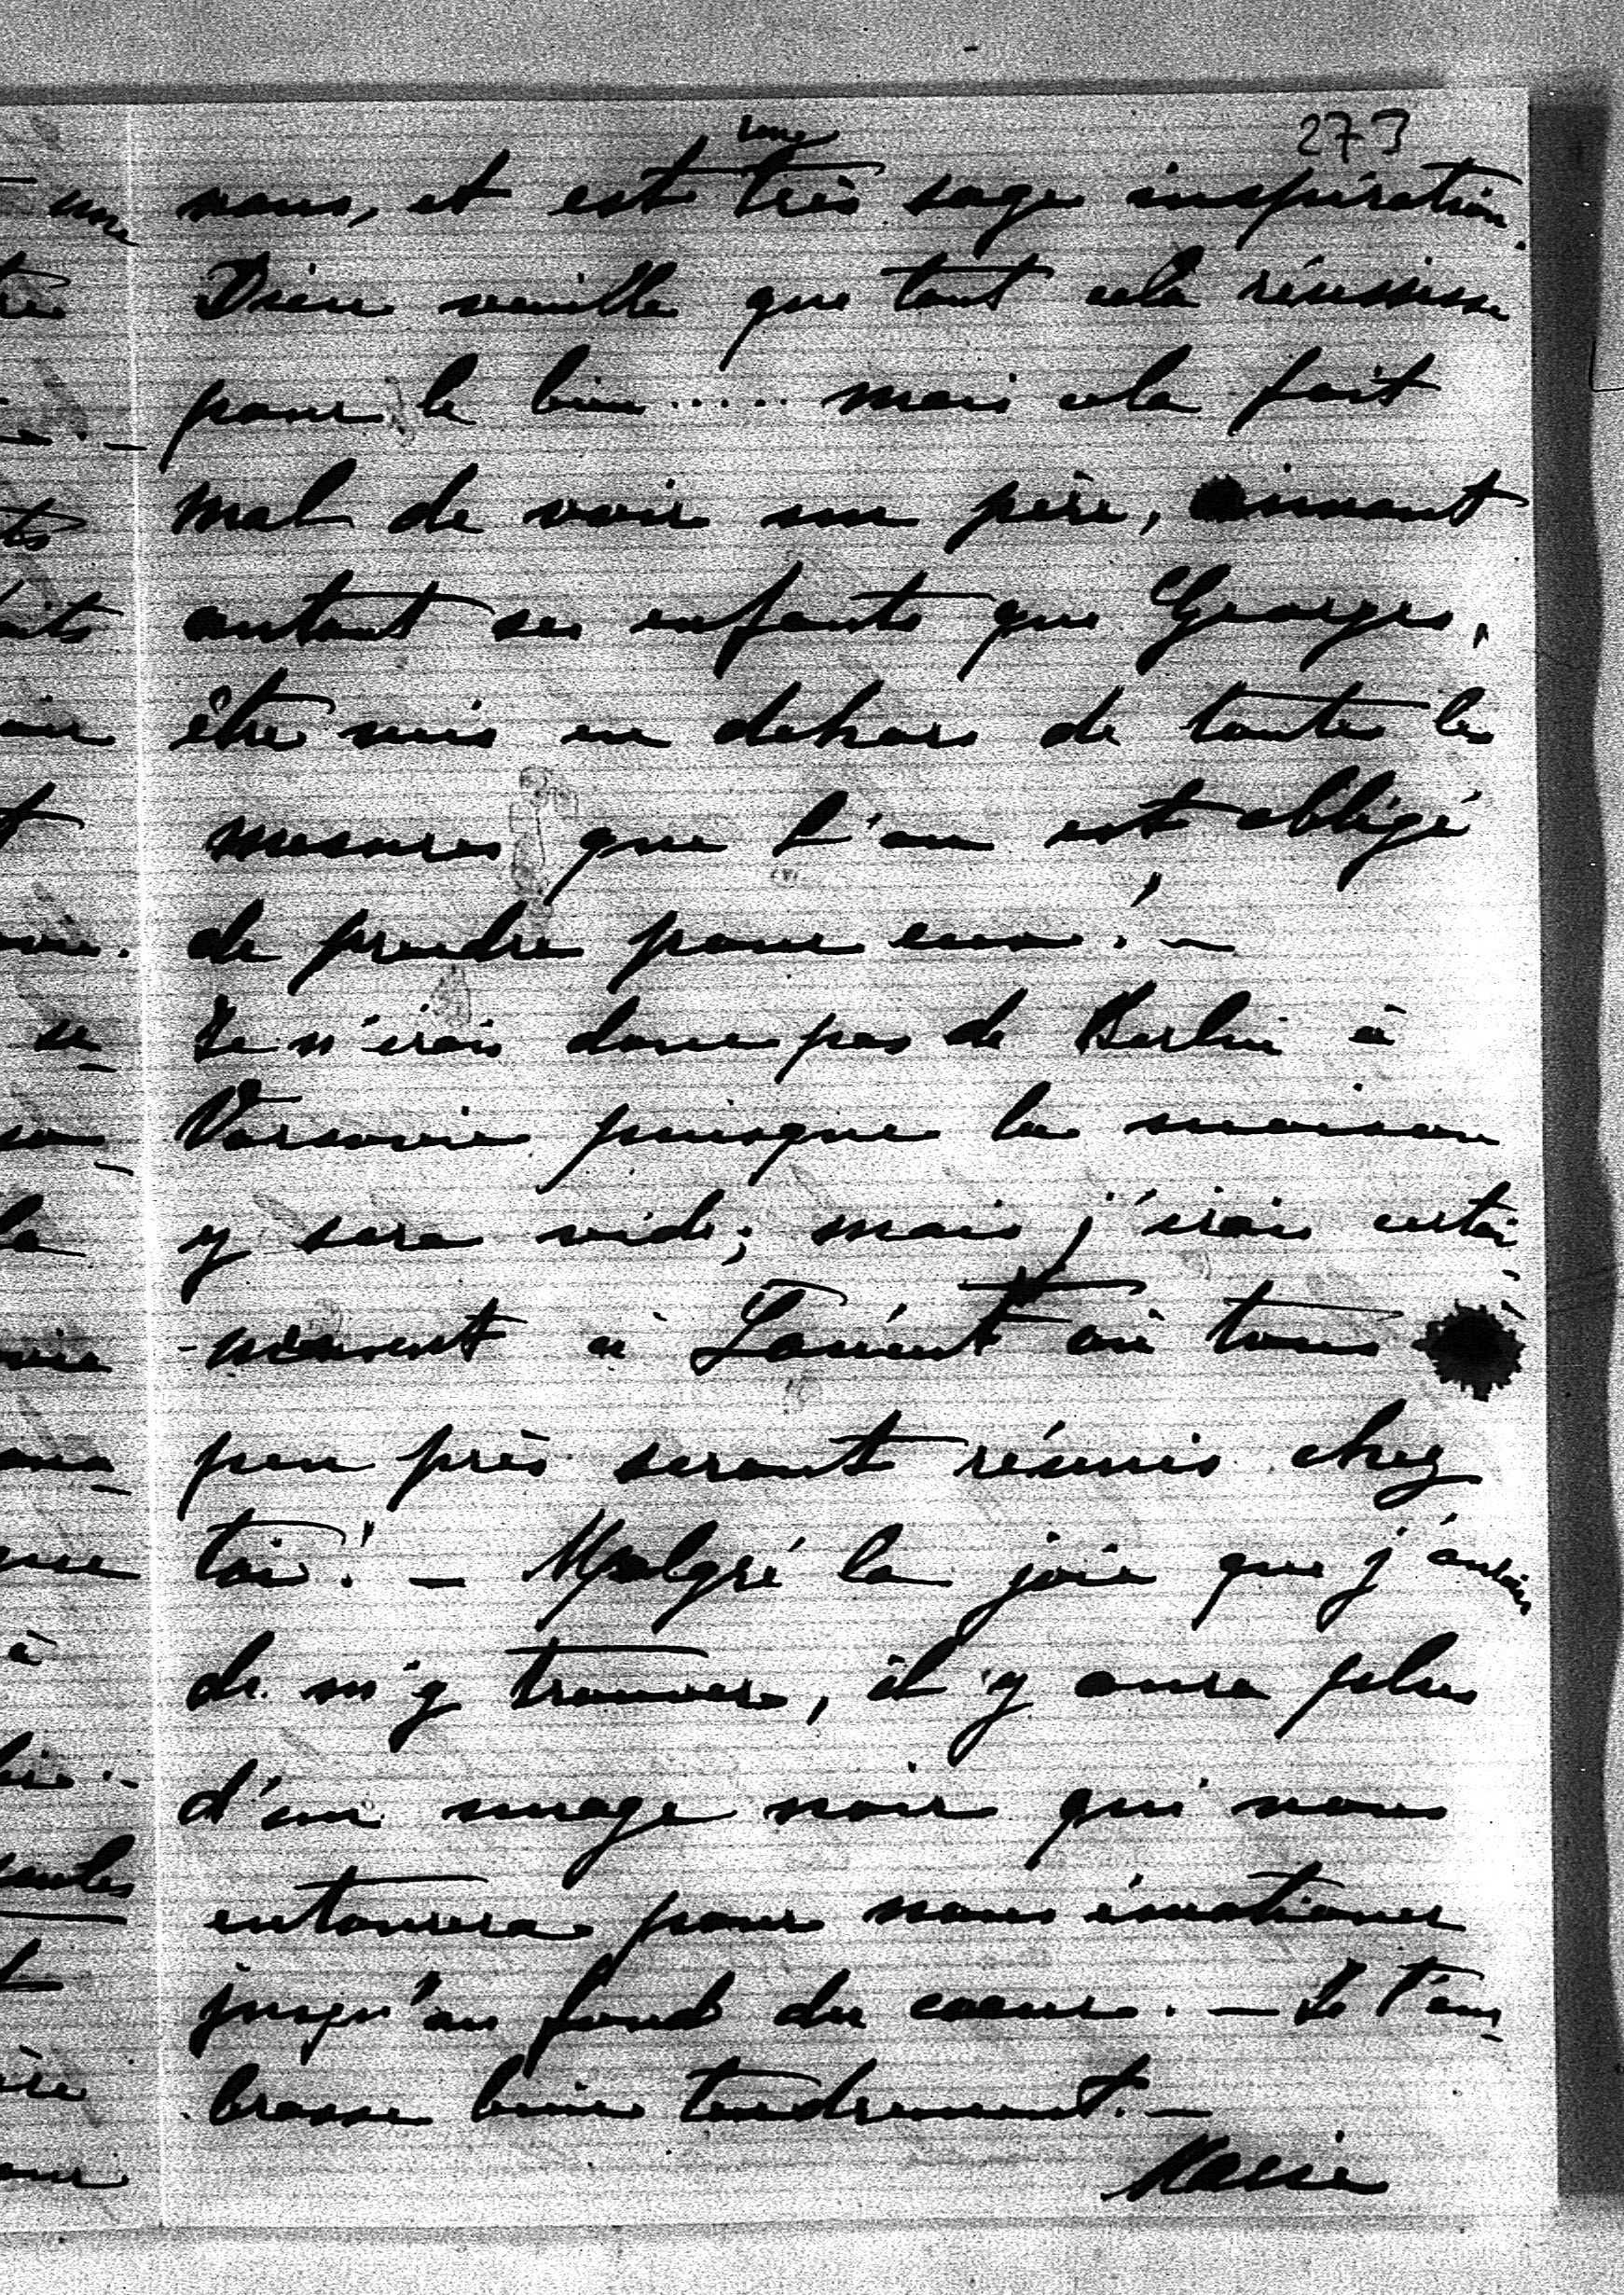 273
une
nous, et est très sage inspiration.
Dieu veuille que tout cela réussisse
pour le bien ..... mais cela fait
mal de voir un père, aimant
autant ses enfants que Georges,
être mis en dehors de toutes les
mesures que l'on est obligé
de prendre pour eux! —
Je n'irais donc pas de Berlin à
Varsovie puisque la maison
y sera vide; mais j'irais certai-
-nement à Łańcut où tous à
peu près seront réunis chez
toi! — Malgré la joie que j'aurais
de m'y trouver, il y aura plus
d'un nuage noir qui nous
entourera pour nous émotioner
jusqu'au fond du coeur. — Je t'em-
brasse bien tendrement. —